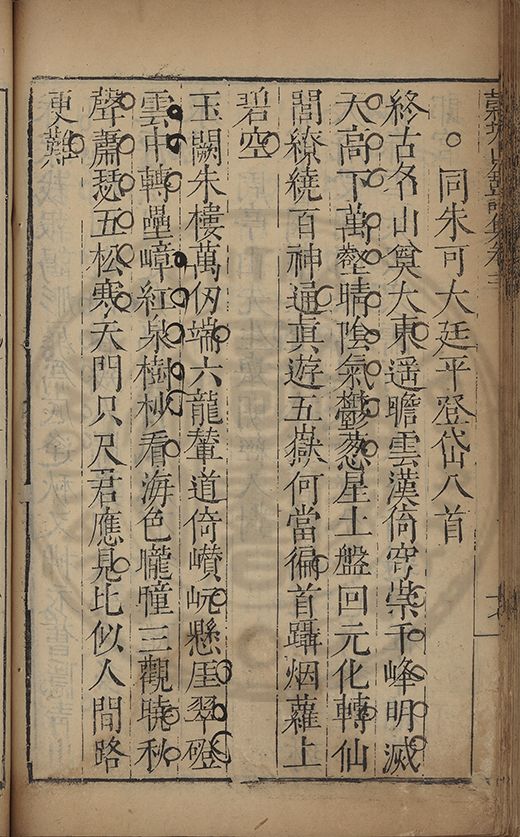 同朱可大廷平登岱八首
終古名山奠大東遥瞻雲漢倚穹崇千峰明滅
天高下萬壑晴陰氣鬱葱星土盤回元化轉仙
閭繚繞百神通眞遊五嶽何當徧首躡烟蘿上
碧空
玉闕朱樓萬仞端六龍輦道倚巑岏懸厓翠磴
雲中轉疊嶂紅泉樹杪看海色曈曨三觀曉秋
聲蕭瑟五松寒天門只尺君應見比似人間路
更難